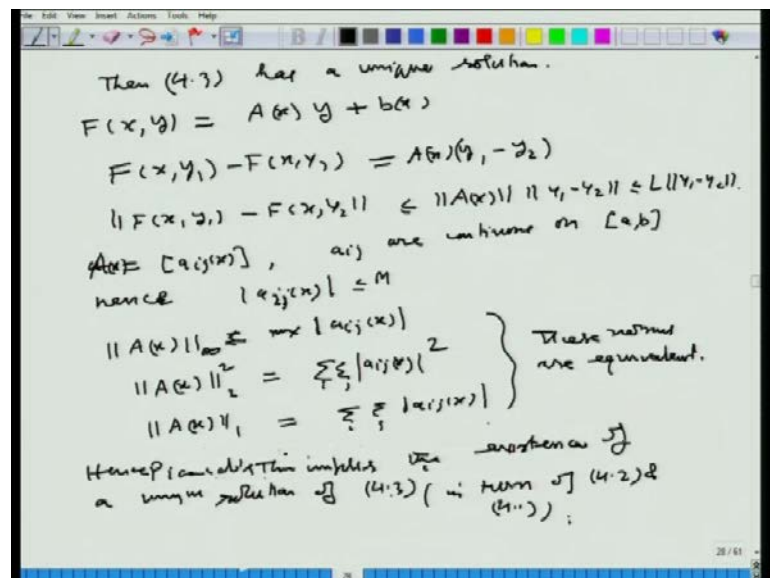 File Edit View Insert Actions Tools Help
B I
Then (4.3) has a unique solution.
F(x,y) = A(x) y + b(x)
F(x,y₁) - F(x,y₂) = A(x)(y₁ - y₂)
|| F(x,y₁) - F(x,y₂)|| ≤ ||A(x)|| || y₁ - y₂|| ≤ L ||y₁ - y₂||.
A(x) = [aij(x)], aij are continuous on [a,b]
hence |aij(x)| ≤ M
|| A(x) ||∞ = max |aij(x)|
|| A(x) ||₂² = Σi Σj |aij(x)|²
|| A(x) ||₁ = Σi Σj |aij(x)|
} These norms are equivalent.
Hence Picard's Thm implies the existence of
a unique solution of (4.3) ( in turn of (4.2) &
(4.1) ) .
28 / 61